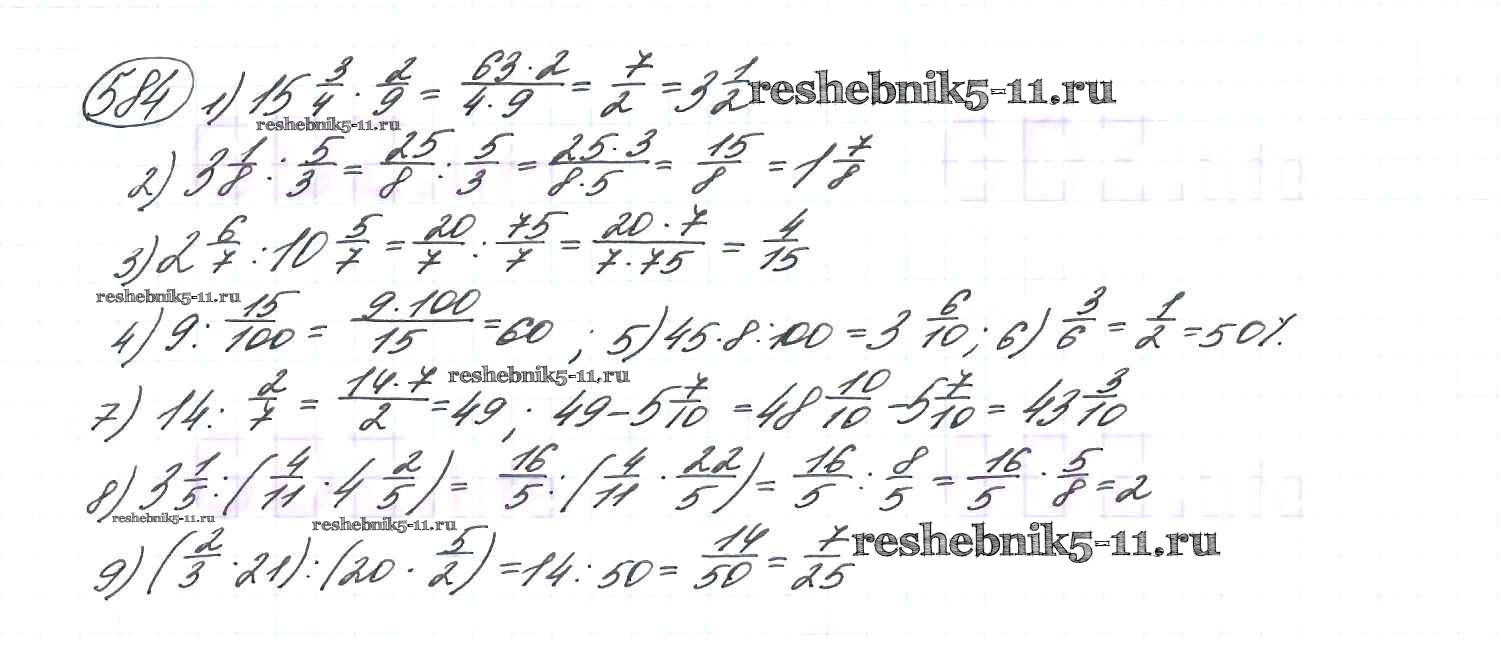 584 1) 15 3/4 · 2/9 = 63·2/4·9 = 7/2 = 3 1/2 reshebnik5-11.ru
reshebnik5-11.ru
2) 3 1/8 : 5/3 = 25/8 : 5/3 = 25·3/8·5 = 15/8 = 1 7/8
3) 2 6/7 : 10 5/7 = 20/7 : 75/7 = 20·7/7·75 = 4/15
reshebnik5-11.ru
4) 9 : 15/100 = 9·100/15 = 60 ; 5) 45·8:100 = 3 6/10 ; 6) 3/6 = 1/2 = 50%.
reshebnik5-11.ru
7) 14 : 2/7 = 14·7/2 = 49 ; 49 - 5 7/10 = 48 10/10 - 5 7/10 = 43 3/10
8) 3 1/5 : (4/11 · 4 2/5) = 16/5 : (4/11 · 22/5) = 16/5 : 8/5 = 16/5 · 5/8 = 2
reshebnik5-11.ru reshebnik5-11.ru
9) (2/3 · 21) : (20 · 5/2) = 14 : 50 = 14/50 = 7/25 reshebnik5-11.ru